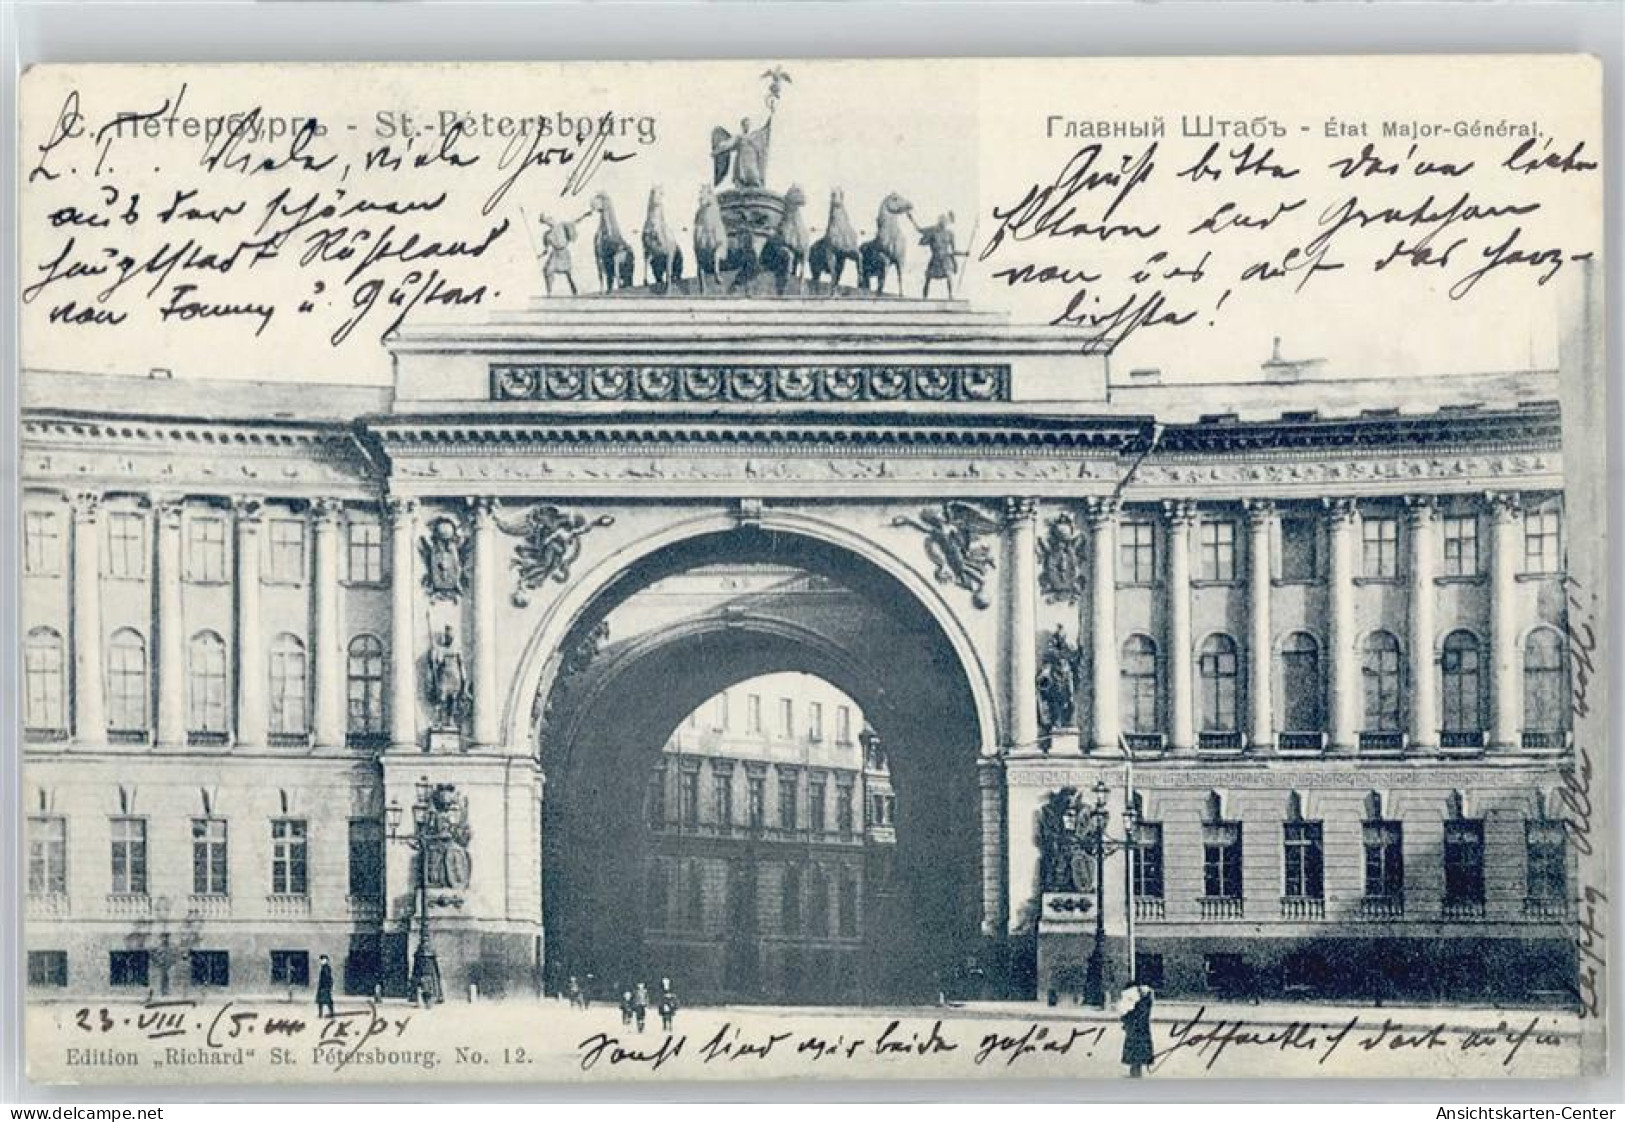 С. Петербургъ - St.-Pétersbourg
Главный Штабъ - État Major-Général.
L. T. Viele, viele Grüsse
aus der schönen
Hauptstadt Rußland
von Fanny u. Gustav.
Grüß bitte Deine lieben
Eltern und Gretchen
von uns auf das herz-
lichste!
23. VIII. (5. IX.) 04
Edition „Richard“ St. Pétersbourg. No. 12.
Sonst sind wir beide gesund! Hoffentlich dort auch in
Leipzig Alle wohl!
Ansichtskarten-Center